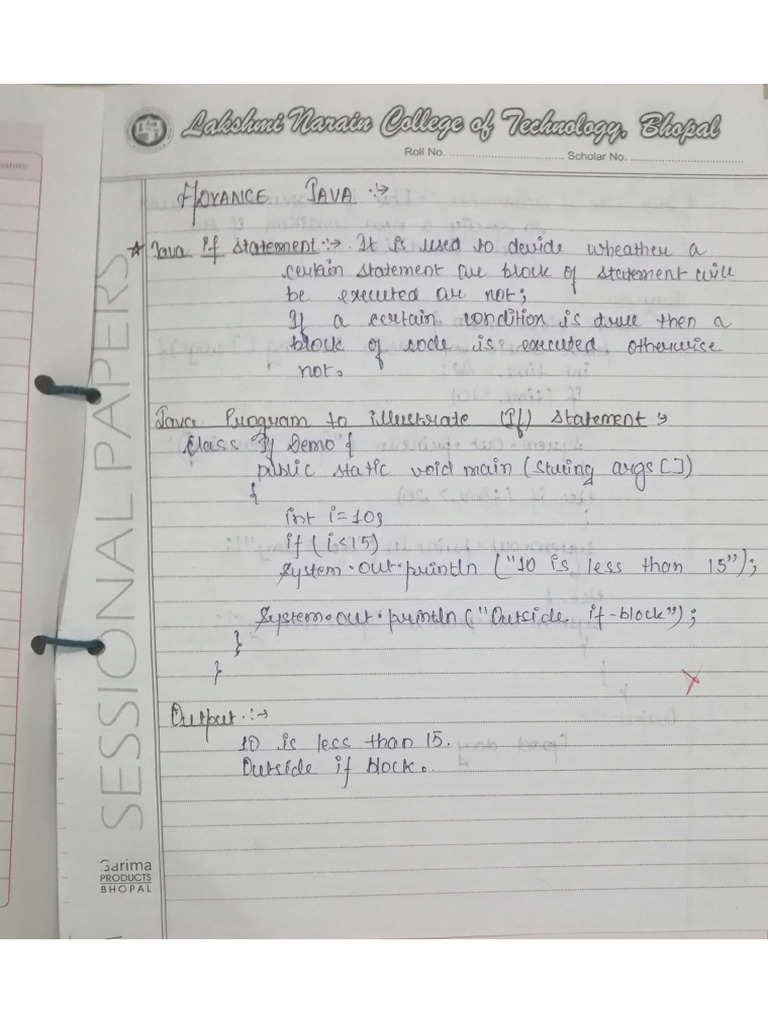 Lakshmi Narain College of Technology, Bhopal
Roll No. .......................................... Scholar No. ..........................................
ADVANCE JAVA :->
* Java If Statement :-> It is used to decide wheather a
certain statement are block of statement will
be executed are not;
If a certain condition is true then a
block of code is executed otherwise
not.
Java Program to illustrate (If) Statement :->
Class If Demo {
public static void main (String args [])
{
int i=10;
if (i<15)
System.out.println ("10 is less than 15");
System.out.println ("Outside if-block");
}
}
Output :->
10 is less than 15.
Outside if block.
SESSIONAL PAPERS
Garima
PRODUCTS
BHOPAL